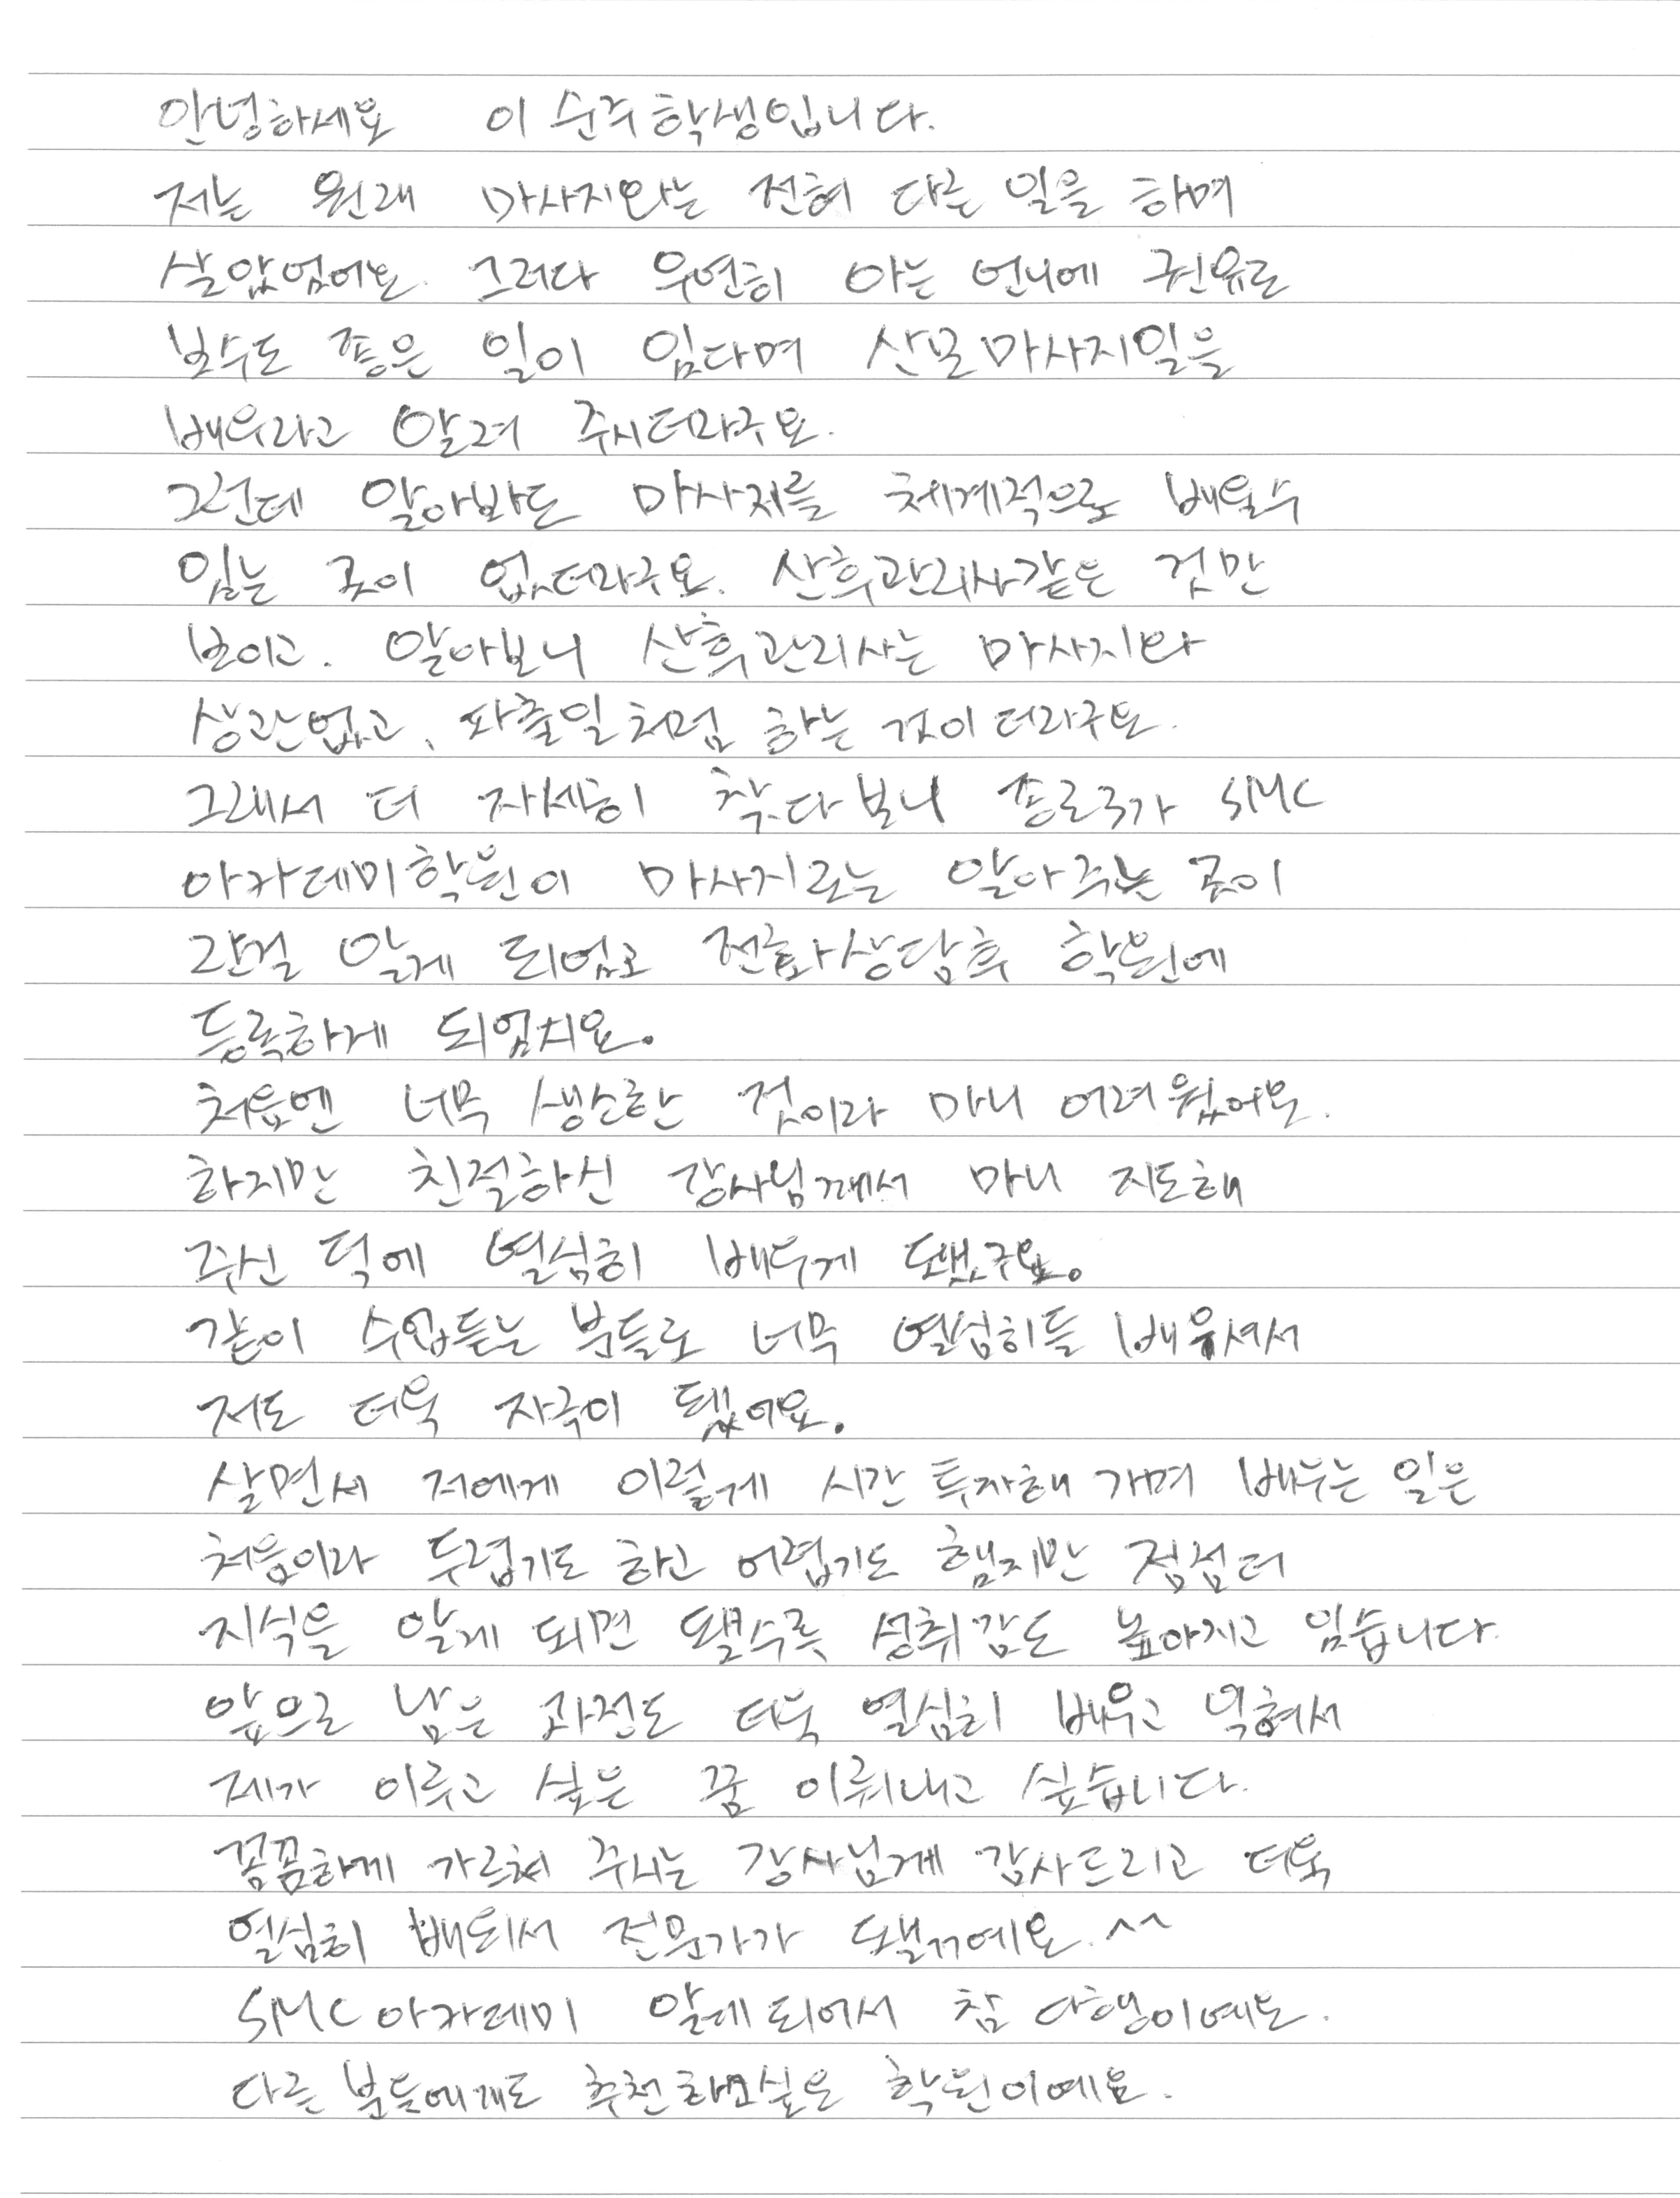 안녕하세요 이순주 학생입니다.
저는 원래 마사지와는 전혀 다른 일을 하며
살았었어요. 그러다 우연히 아는 언니에 권유로
보수도 좋은 일이 있다며 산모마사지일을
배우라고 알려 주시더라구요.
그런데 알아봐도 마사지를 체계적으로 배울수
있는 곳이 없더라구요. 산후관리사같은 것만
보이고. 알아보니 산후관리사는 마사지와
상관없고, 파출일처럼 하는 것이더라구요.
그래서 더 자세히 찾다보니 종로3가 SMC
아카데미학원이 마사지로는 알아주는 곳이
란걸 알게 되었고 전화상담후 학원에
등록하게 되었지요.
처음엔 너무 생소한 것이라 마니 어려웠어요.
하지만 친절하신 강사님께서 마니 지도해
주신 덕에 열심히 배우게 됐구요.
같이 수업듣는 분들로 너무 열심히들 배우셔서
저도 더욱 자극이 됐어요.
살면서 저에게 이렇게 시간 투자해 가며 배우는 일은
처음이라 두렵기도 하고 어렵기도 했지만 점점더
지식을 알게 되면 됄수록 성취감도 높아지고 있습니다.
앞으로 남은 과정도 더욱 열심히 배우고 익혀서
제가 이루고 싶은 꿈 이뤄내고 싶습니다.
꼼꼼하게 가르쳐 주시는 강사님께 감사드리고 더욱
열심히 배워서 전문가가 됄꺼예요. ^^
SMC아카데미 알게되어서 참 다행이예요.
다른 분들에게도 추천하고싶은 학원이예요.